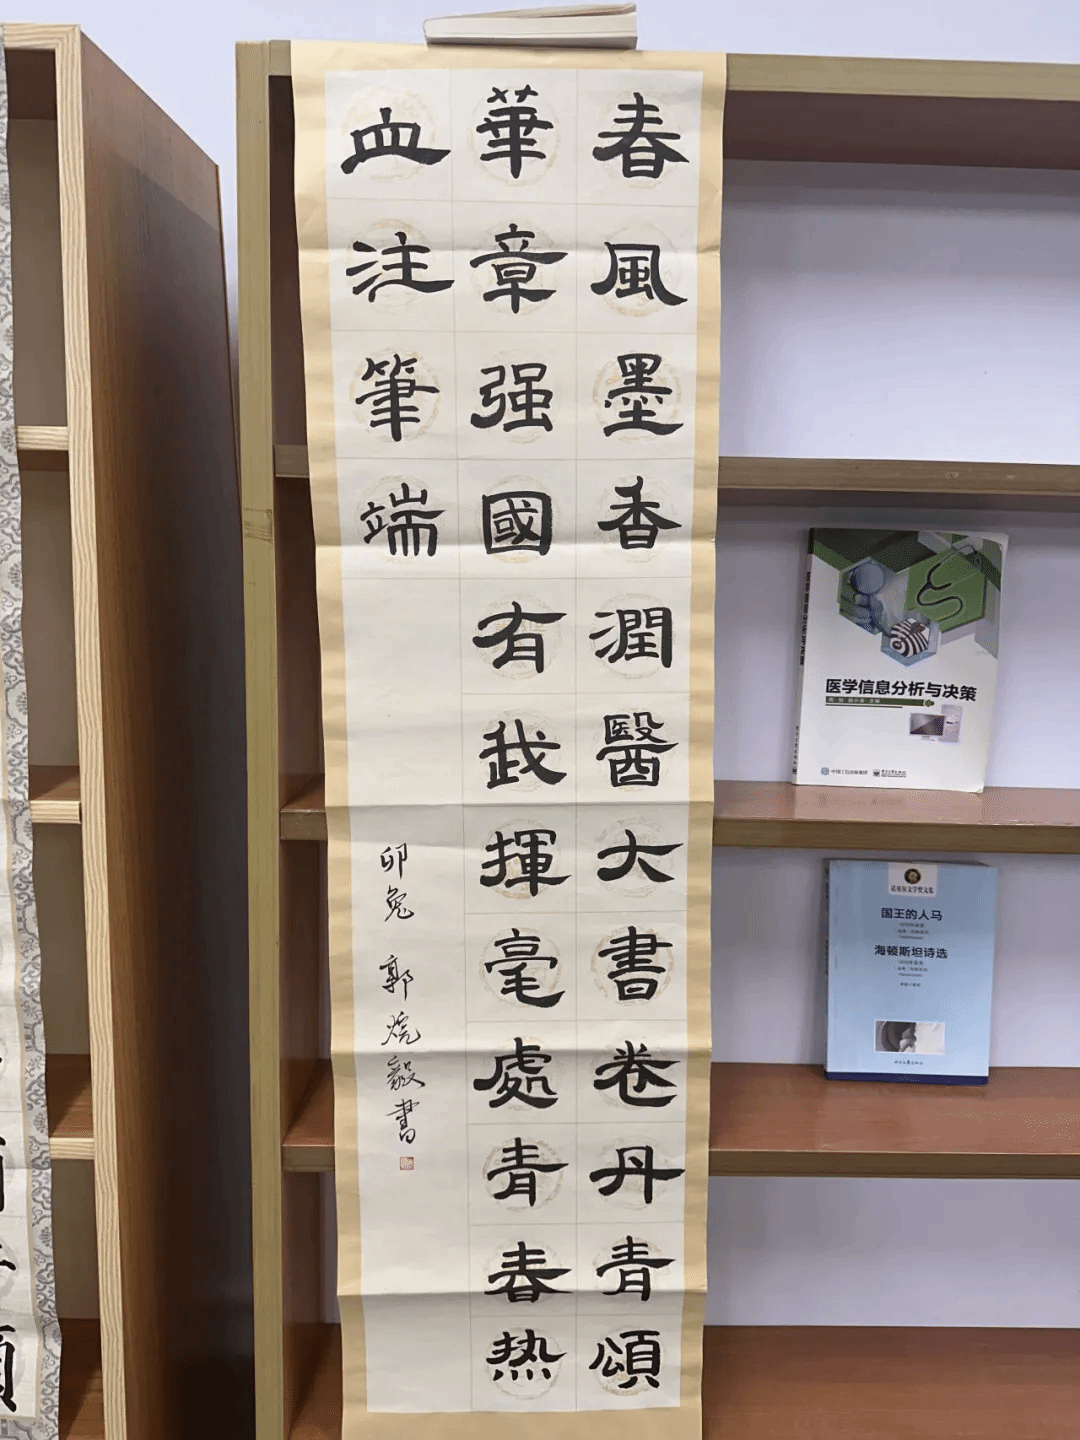 春風墨香潤醫大書卷丹青頌
華章强國有我揮毫處青春热
血注筆端
卯兔 郭烷毅書
医学信息分析与决策
诺贝尔文学奖文集
国王的人马
海顿斯坦诗选